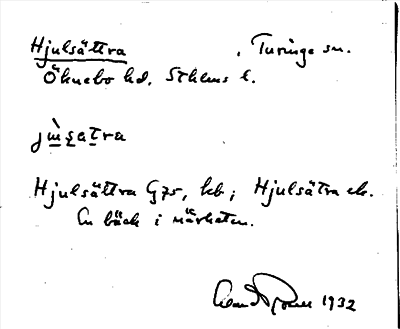 Hjulsättra , Turinge sn.
Öknebo hd, Sthlms l.
Hjulsättra G 75, kb; Hjulsätra ek.
En bäck i närheten.
1932